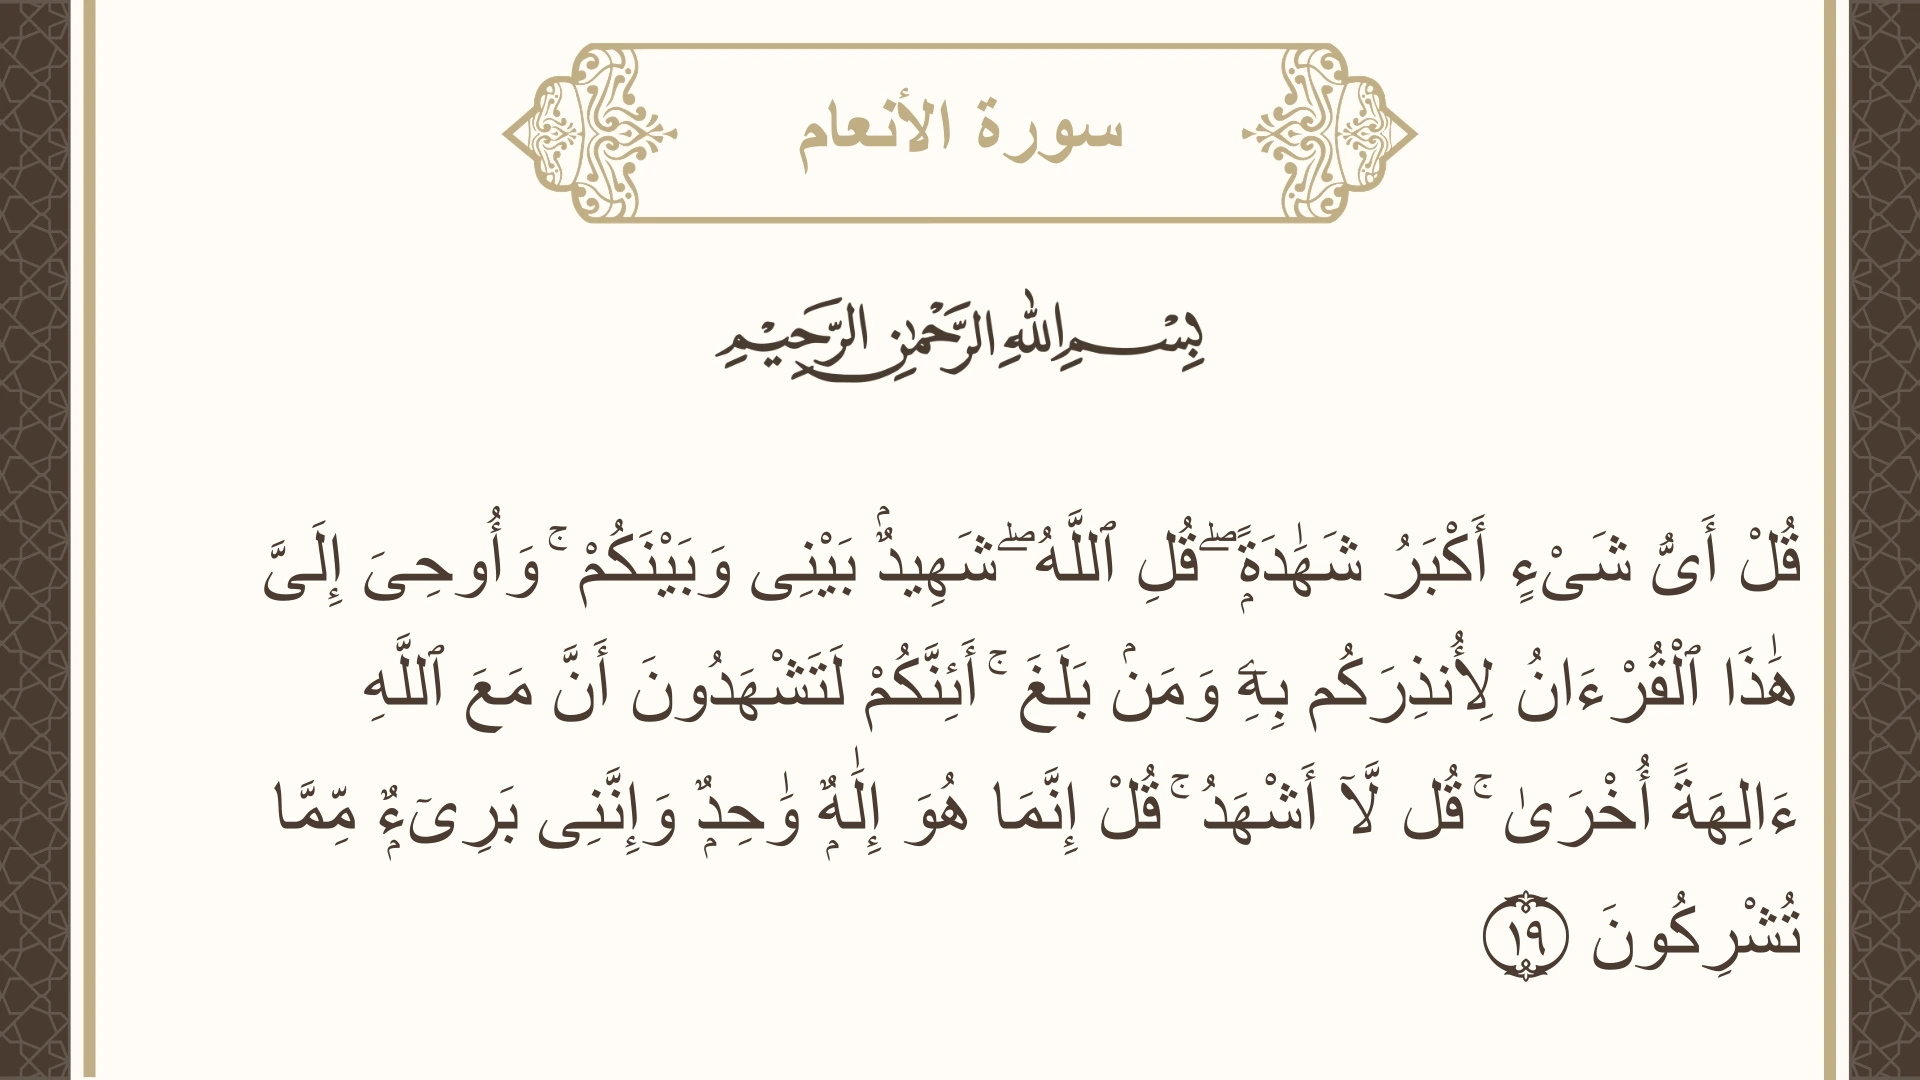 سورة الأنعام
بِسْمِ اللهِ الرَّحْمٰنِ الرَّحِيْمِ
قُلْ أَىُّ شَىْءٍ أَكْبَرُ شَهَٰدَةًۭ ۖ قُلِ ٱللَّهُ ۖ شَهِيدٌۢ بَيْنِى وَبَيْنَكُمْ ۚ وَأُوحِىَ إِلَىَّ
هَٰذَا ٱلْقُرْءَانُ لِأُنذِرَكُم بِهِۦ وَمَنۢ بَلَغَ ۚ أَئِنَّكُمْ لَتَشْهَدُونَ أَنَّ مَعَ ٱللَّهِ
ءَالِهَةً أُخْرَىٰ ۚ قُل لَّآ أَشْهَدُ ۚ قُلْ إِنَّمَا هُوَ إِلَٰهٌۭ وَٰحِدٌۭ وَإِنَّنِى بَرِىٓءٌۭ مِّمَّا
تُشْرِكُونَ ١٩